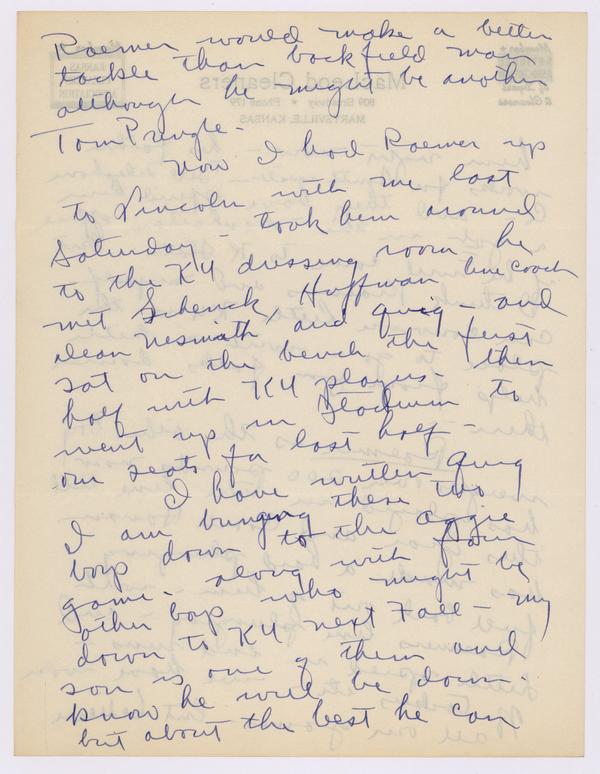 Roemer would make a better
tackle than backfield man
although he might be another
Tom Pringle -
Now I had Roemer up
to Lincoln with me last
Saturday - took him around
to the KU dressing room he
met Schenck, Huffman line coach
dean Nesmith, and quig - and
sat on the bench the first
half with KU players - then
went up in Stadium to
our seats for last half -
I have written quig
I am bringing these two
boys down to the aggie
game - along with four
other boys who might be
down to KU next Fall - my
son is one of them and
know he will be down -
but about the best he can